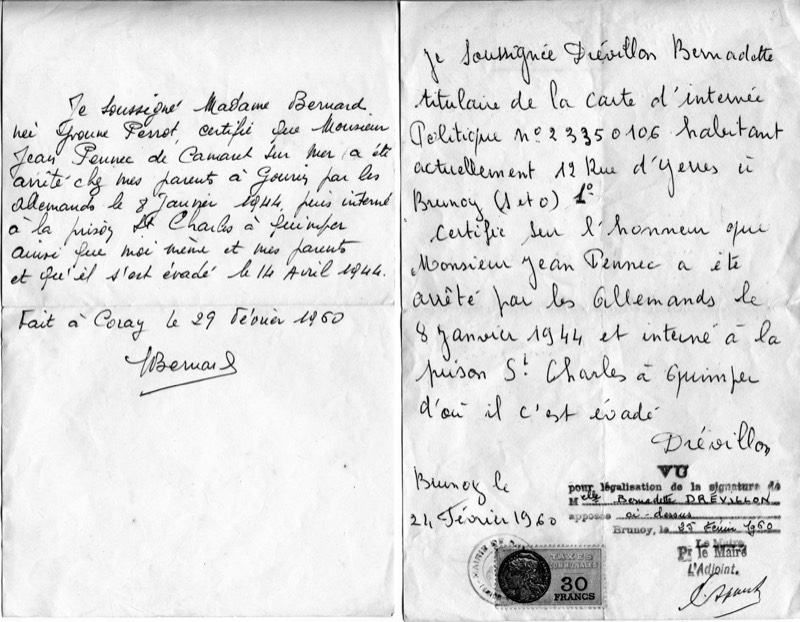 Je soussigné Madame Bernard
neé Yvonne Perrot, certifie que Monsieur
Jean Pennec de Camaret sur mer, a été
arrêté chez mes parents à Gourin par les
allemands le 8 Janvier 1944, puis interné
à la prison St Charles à Quimper
ainsi que moi même et mes parents
et qu'il s'est évadé le 14 Avril 1944.
Fait à Coray le 29 Février 1960
YBernard
Je soussignée Drévillon Bernadette
titulaire de la carte d'internée
Politique n° 23350106 habitant
actuellement 12 Rue d'Yerres à
Brunoy (S et O) 1°
certifie sur l'honneur que
Monsieur Jean Pennec a été
arrêté par les allemands le
8 janvier 1944 et interné à la
prison St Charles à Quimper
d'où il c'est évadé
Drévillon
Brunoy le
24 Février 1960
VU
pour légalisation de la signature de
Melle Bernadette DREVILLON
apposée ci-dessus
Brunoy, le 25 Février 1960
Le Maire
Pr le Maire
L'Adjoint.
MAIRIE DE
TAXES
COMMUNALES
30
FRANCS